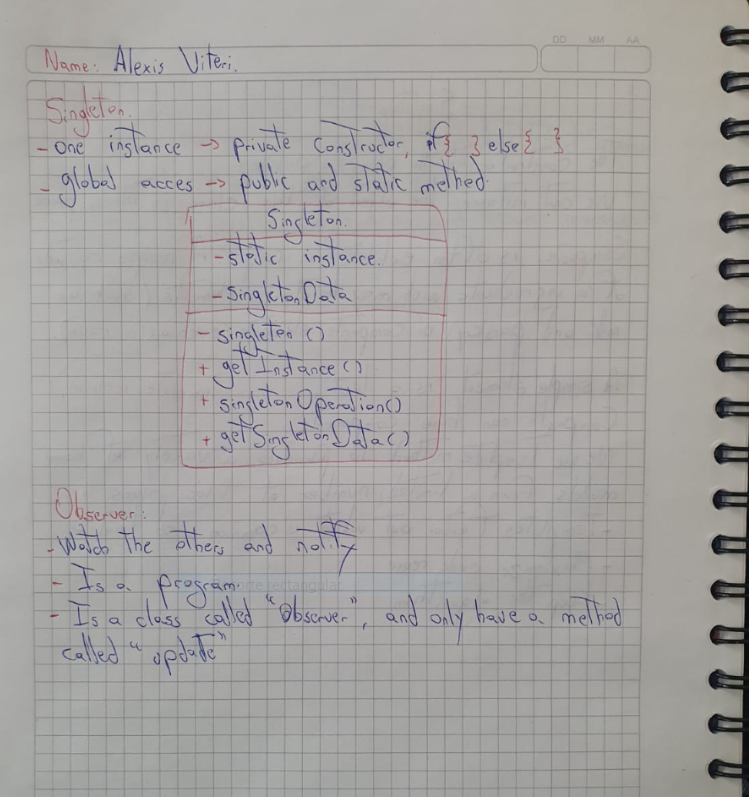 DD MM AA
Name: Alexis Viteri.
Singleton.
- one instance -> private constructor, if { } else { }
- global acces -> public and static method
Singleton.
- static instance.
- SingletonData
- singleton ()
+ getInstance ()
+ singletonOperation()
+ getSingletonData()
Observer:
- Watch the others and notify
- Is a program.
- Is a class called "Observer", and only have a method
called "update"